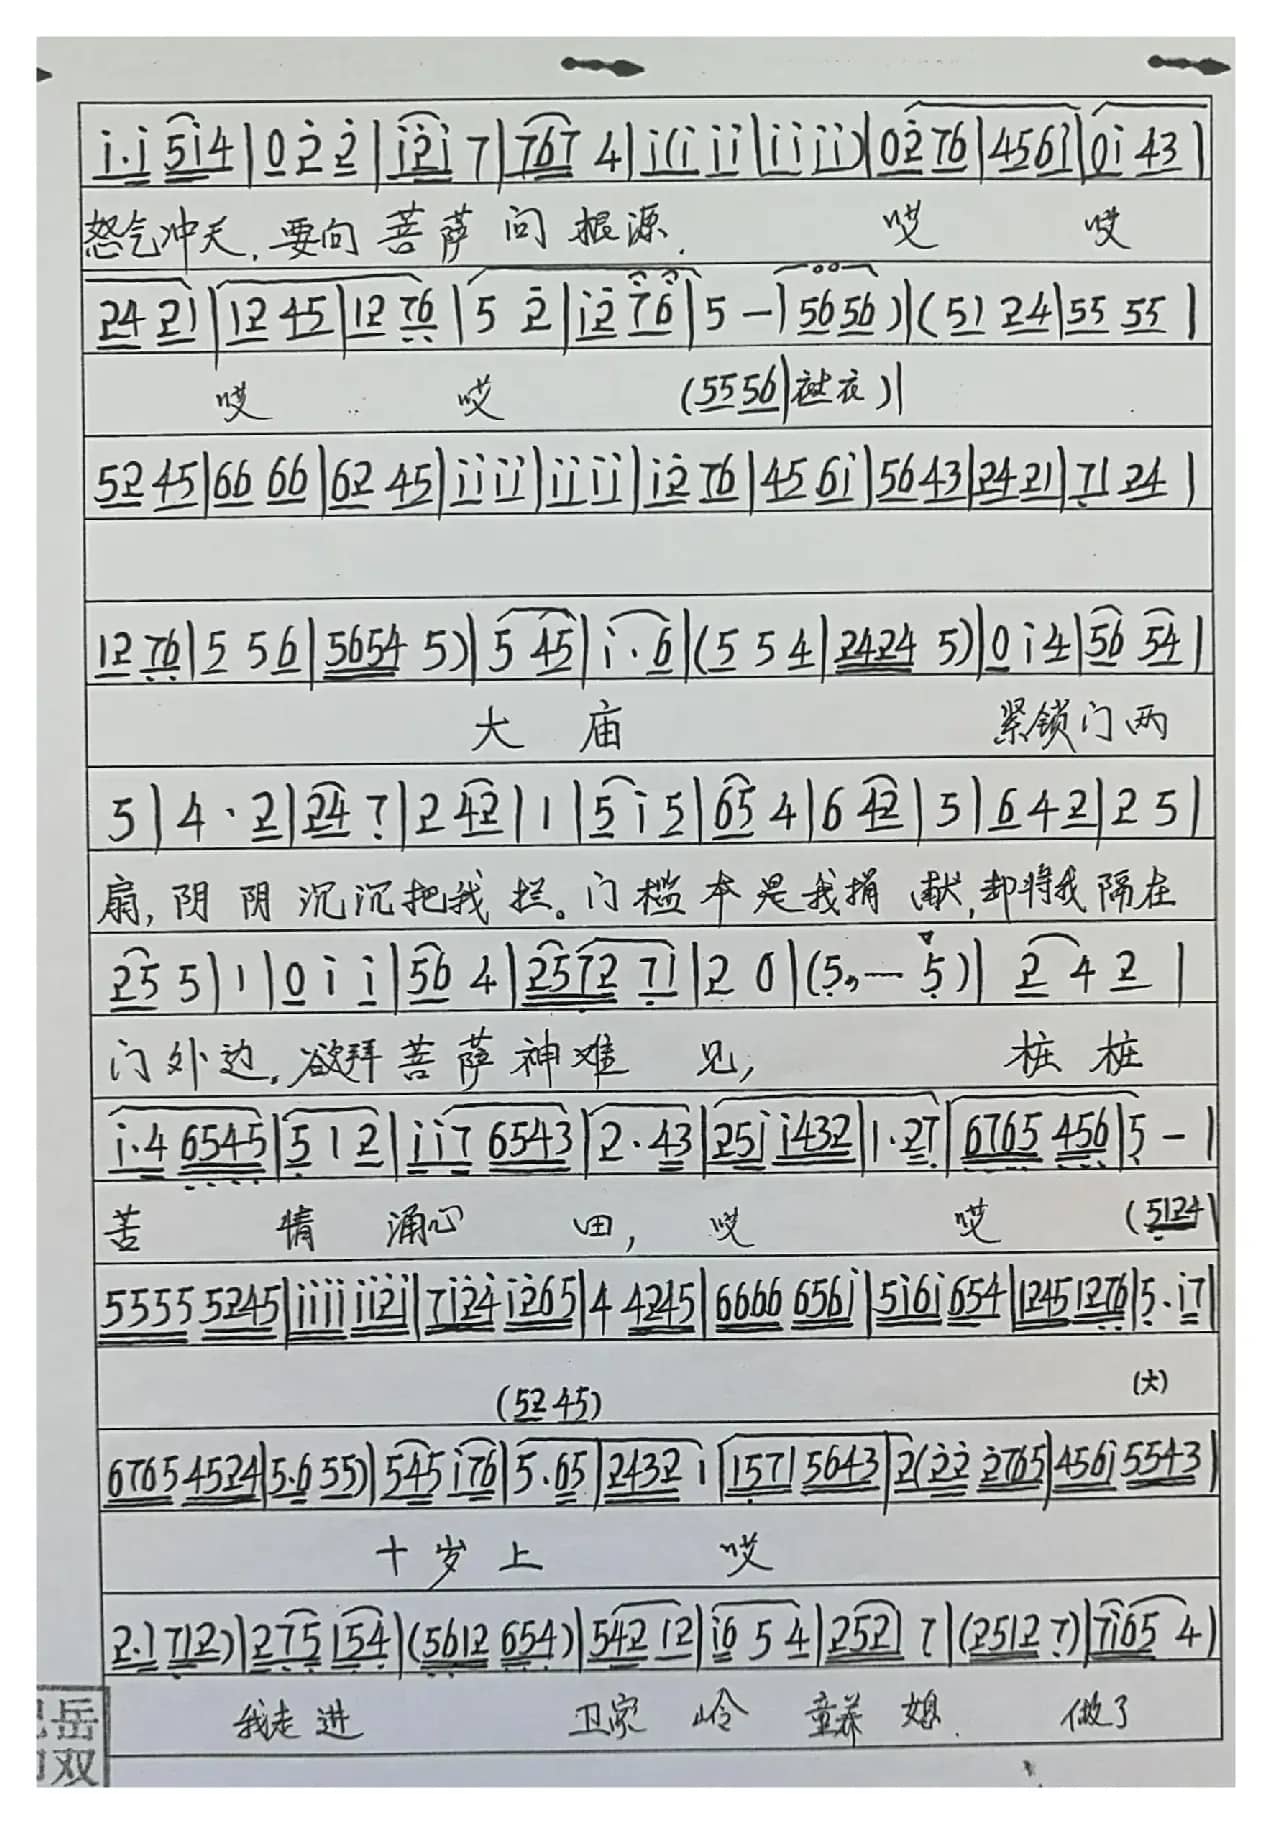 i·i 5i4|0 2 2|i2i 7|767 4|i(i ii|ii ii)|02 76|456i|0i 43|
怒气冲天,要向菩萨问根源. 哎 哎
24 21|12 45|12 76|5 2|i2 76|5 -|56 56)|(51 24|55 55|
哎 哎 (55 56| )|
52 45|66 66|62 45|ii ii|ii ii|i2 76|45 6i|56 43|24 21|71 24|
12 76|5 5 6|5654 5)|5 45|i·6|(5 5 4|2424 5)|0 i 4|56 54|
大 庙 紧锁门两
5|4·2|24 7|2 42|1|5 i 5|65 4|6 42|5|6 4 2|2 5|
扇,阴阴沉沉把我拦。门槛本是我捐献,却将我隔在
25 5|1|0 i i|56 4|2572 71|2 0|(5,— 5)|2 4 2|
门外边,欲拜菩萨神难见, 桩桩
i·4 6545|5 1 2|ii7 6543|2·43|25i i432|1·27|6765 456|5 -|
苦 情 涌心 田, 哎 哎 (5124|
5555 5245|iiii ii2i|7i24 i265|4 4245|6666 656i|5i6i 654|1245 1276|5·i7|
(52 45) (大)
6765 4524|5·6 55)|545 i76|5·65|2432 i|1571 5643|2(22 2765|456i 5543|
十岁上 哎
2·1 712)|275 154|(5612 654)|542 12|i6 5 4|2521 7|(2512 7)|7i65 4)
我走进 卫家岭 童养媳. 做了
岳
双